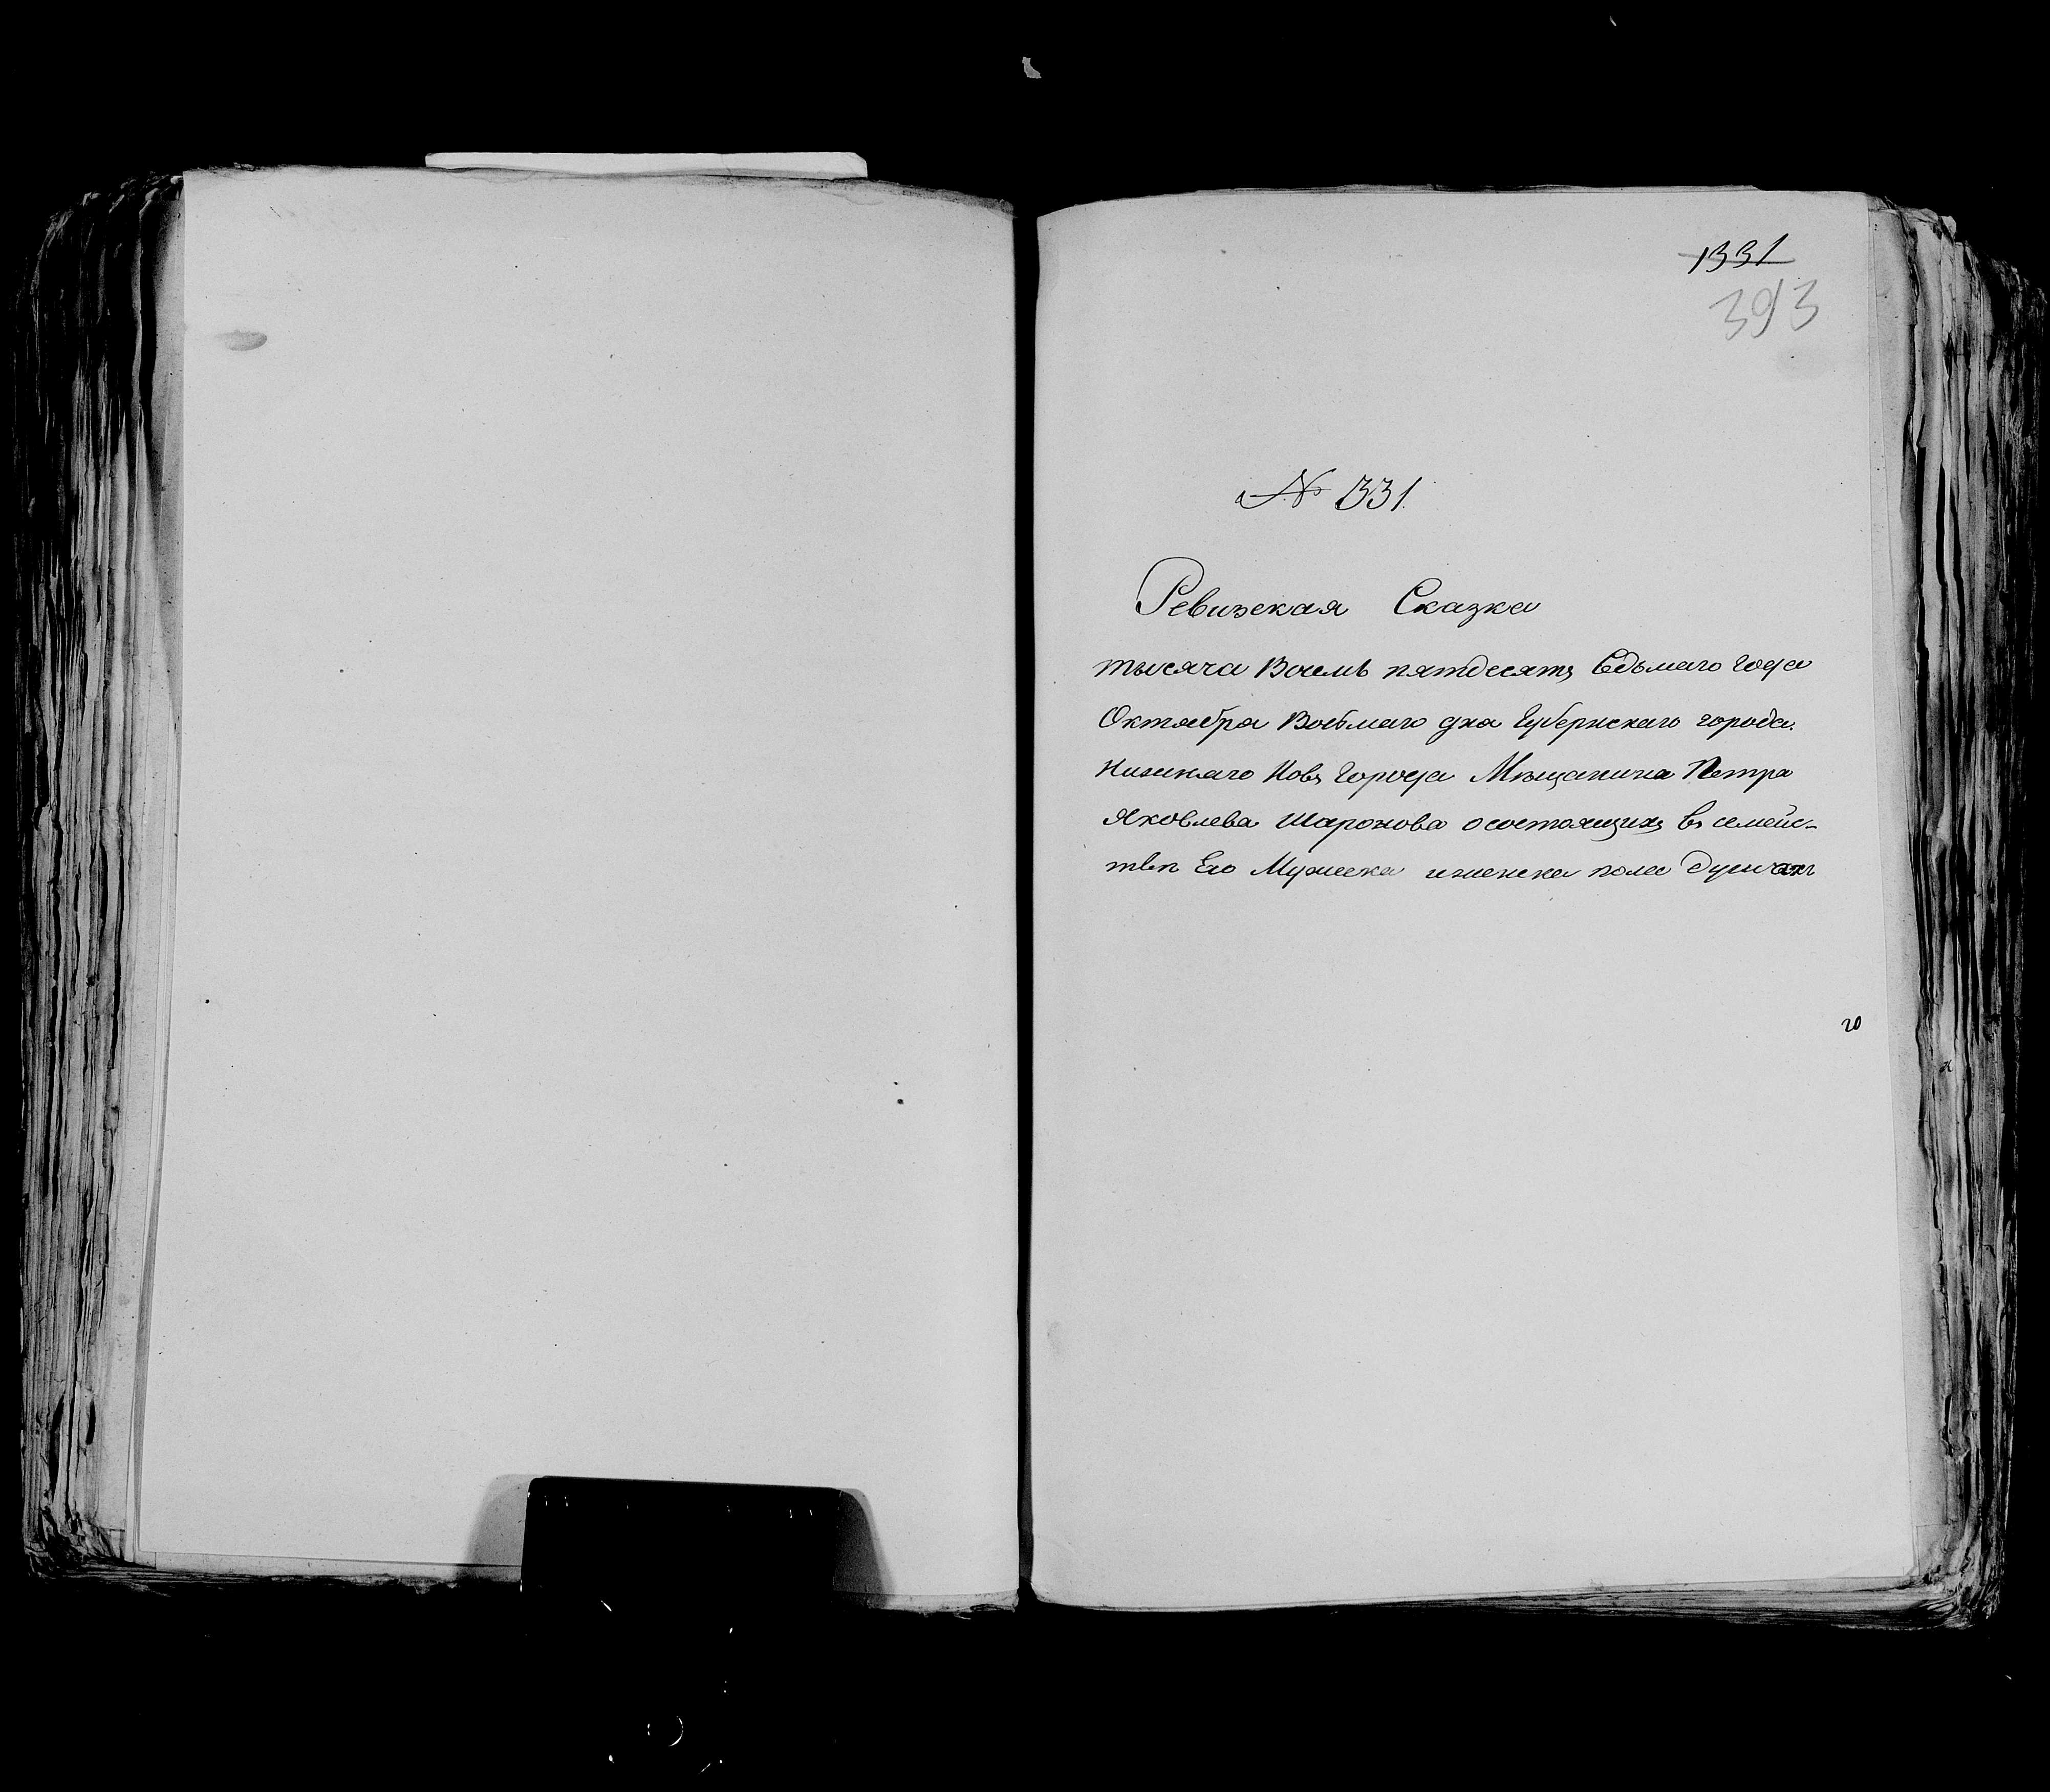 1331
393
№ 1331.
Ревизская Сказка
тысяча Восемь пятдесятъ Седьмаго года
Октября Восьмаго дня Губернскаго города.
Нижняго Новъ Города Мѣщанина Петра
Яковлева Шаронова о состоящихъ въ семейс-
твѣ Его Мужеска и женска пола душахъ
го